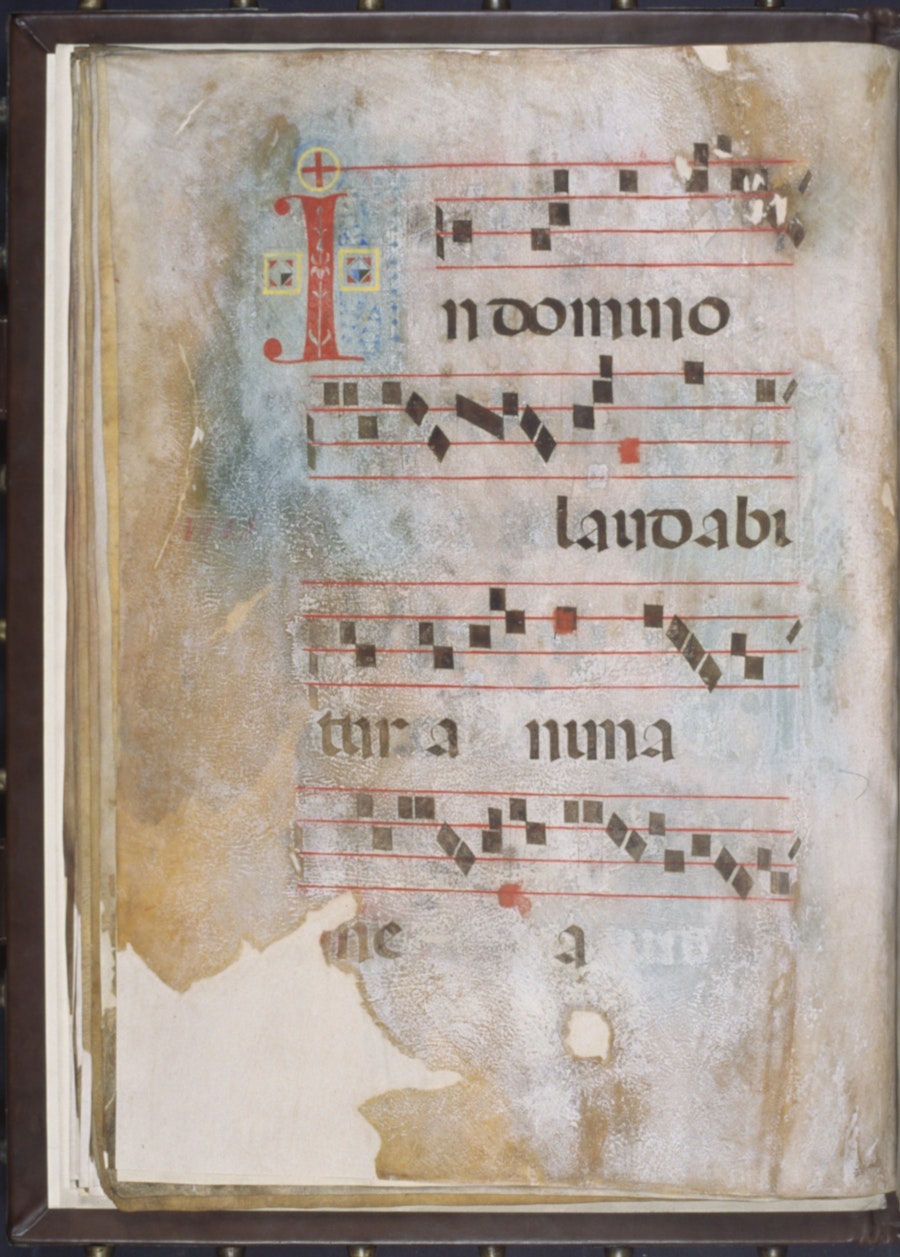 In domino
laudabi
tur a nima
me a